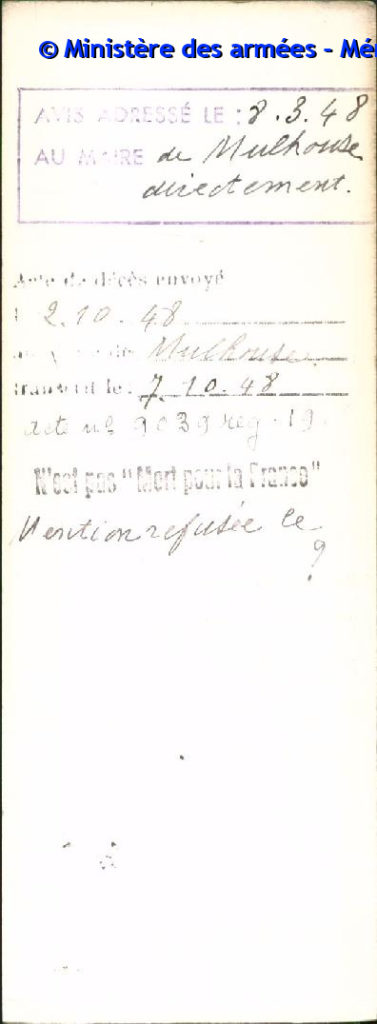 © Ministère des armées - Mé
AVIS ADRESSÉ LE : 8.3.48
AU MAIRE de Mulhouse
directement.
Acte de décès envoyé
2.10.48
Mulhouse
transcrit le: 7.10.48
acte nº 9039 reg. 19
N'est pas "Mort pour la France"
Mention refusée le
?